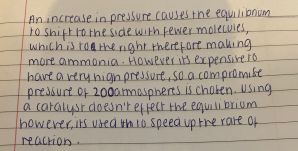 An increase in pressure causes the equilibrium
to shift to the side with fewer molecules,
which is to the right therefore making
more ammonia. However its expensive to
have a very high pressure, so a compromise
pressure of 200atmospheres is chosen. Using
a catalyst doesn't effect the equilibrium
however, its used to speed up the rate of
reaction.